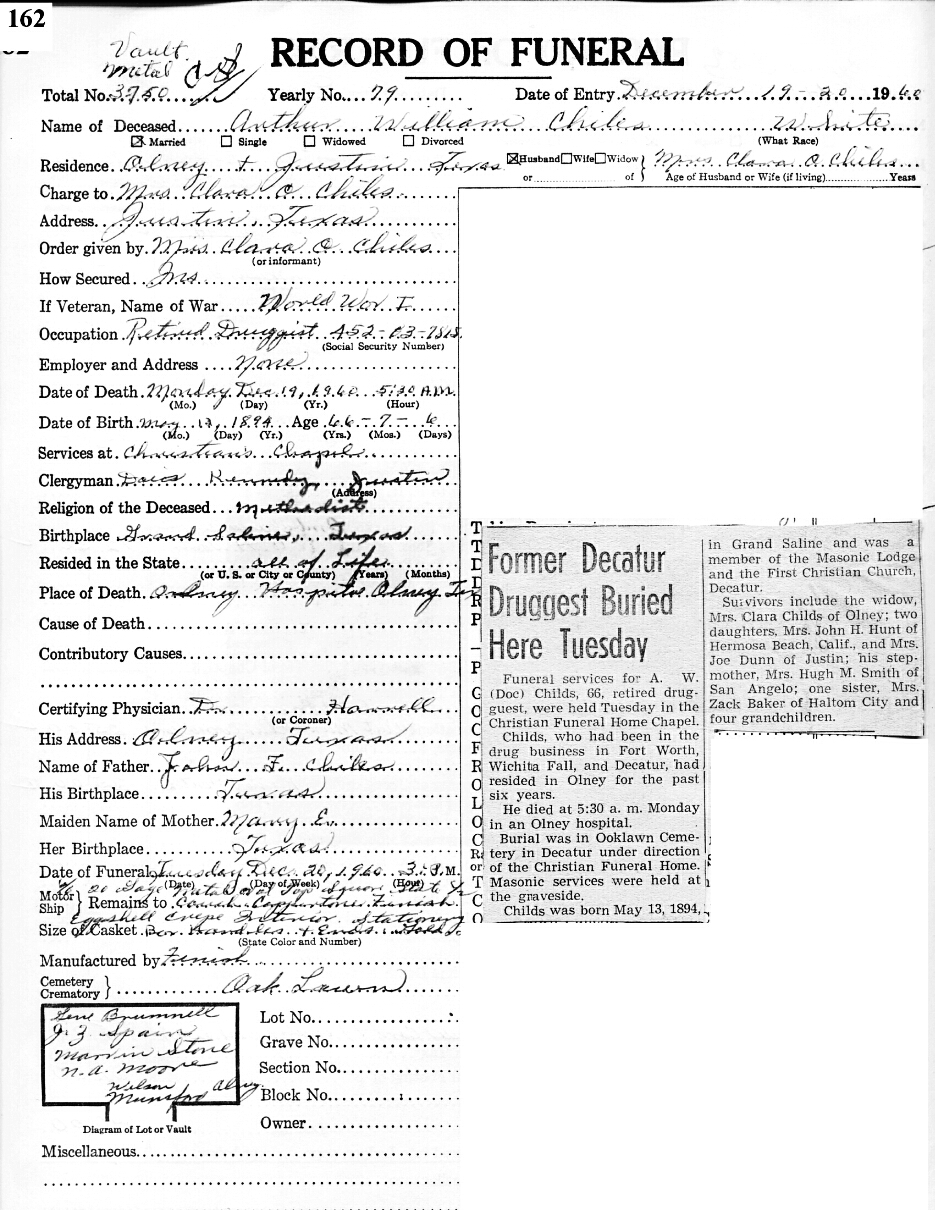 162
Vault
Metal
RECORD OF FUNERAL
Total No. 3750 Yearly No. 79 Date of Entry December 19-20 1960
Name of Deceased Arthur William Chiles White
☒ Married ☐ Single ☐ Widowed ☐ Divorced (What Race)
Residence Olney + Justin Texas ☒Husband☐Wife☐Widow Mrs. Clara O. Chiles
or of Age of Husband or Wife (if living) Years
Charge to Mrs. Clara O. Chiles
Address Justin, Texas
Order given by Mrs. Clara O. Chiles
(or informant)
How Secured Ins
If Veteran, Name of War World War I
Occupation Retired Druggist 452-03-
(Social Security Number)
Employer and Address None
Date of Death Monday Dec. 19, 1960 5:30 A.M.
(Mo.) (Day) (Yr.) (Hour)
Date of Birth May 13, 1894 Age 66-7-6
(Mo.) (Day) (Yr.) (Yrs.) (Mos.) (Days)
Services at Christian's Chapel
Clergyman Kennedy, Justin
(Address)
Religion of the Deceased Methodist
Birthplace Grand Saline, Texas
Resided in the State all of Life
(or U. S. or City or County) (Years) (Months)
Place of Death Olney Hospital Olney Tex
Cause of Death
Contributory Causes
Certifying Physician Dr. Harrell
(or Coroner)
His Address Olney Texas
Name of Father John F. Chiles
His Birthplace Texas
Maiden Name of Mother Mary E.
Her Birthplace Texas
Date of Funeral Tuesday Dec. 20, 1960 3: P.M.
(Date) (Day of Week) (Hour)
20 Gage Metal Top Square
Motor
Ship
Remains to Coppertone Finish
Eggshell Crepe Interior Stationery
Size of Casket Bar Handles + Ends Gold
(State Color and Number)
Manufactured by Finish
Cemetery
Crematory Oak Lawn
Gene Brummell
J. Z. Spain
Marvin Stone
N. A. Moore
Wilson
Munsford Olney
Diagram of Lot or Vault
Lot No.
Grave No.
Section No.
Block No.
Owner
Miscellaneous
Former Decatur
Druggest Buried
Here Tuesday
Funeral services for A. W.
(Doc) Childs, 66, retired drug-
guest, were held Tuesday in the
Christian Funeral Home Chapel.
Childs, who had been in the
drug business in Fort Worth,
Wichita Fall, and Decatur, had
resided in Olney for the past
six years.
He died at 5:30 a. m. Monday
in an Olney hospital.
Burial was in Ooklawn Ceme-
tery in Decatur under direction
of the Christian Funeral Home.
Masonic services were held at
the graveside.
Childs was born May 13, 1894,
in Grand Saline and was a
member of the Masonic Lodge
and the First Christian Church,
Decatur.
Suivivors include the widow,
Mrs. Clara Childs of Olney; two
daughters, Mrs. John H. Hunt of
Hermosa Beach, Calif., and Mrs.
Joe Dunn of Justin; his step-
mother, Mrs. Hugh M. Smith of
San Angelo; one sister, Mrs.
Zack Baker of Haltom City and
four grandchildren.